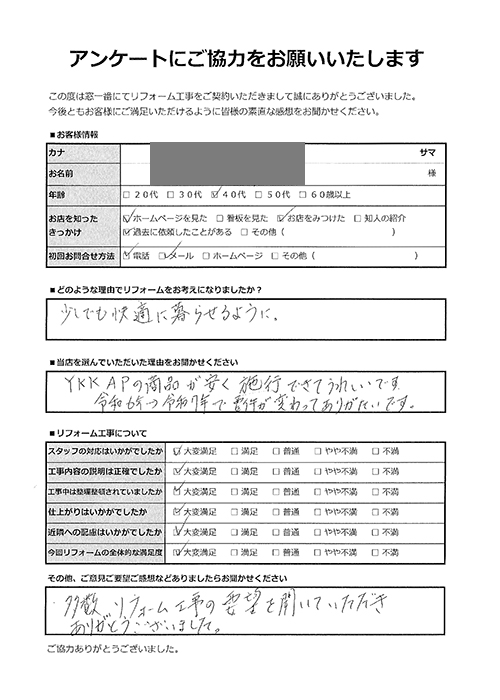 アンケートにご協力をお願いいたします
この度は窓一番にてリフォーム工事をご契約いただきまして誠にありがとうございました。
今後ともお客様にご満足いただけるように皆様の素直な感想をお聞かせください。
■お客様情報
カナ サマ
お名前 様
年齢 □20代 □30代 ☑40代 □50代 □60歳以上
お店を知ったきっかけ ☑ホームページを見た □看板を見た ☑お店をみつけた □知人の紹介
☑過去に依頼したことがある □その他（ ）
初回お問合せ方法 ☑電話 ☑メール □ホームページ □その他（ ）
■どのような理由でリフォームをお考えになりましたか？
少しでも快適に暮らせるように。
■当店を選んでいただいた理由をお聞かせください
YKK APの商品が安く施行できてうれしいです
令和6年つ令和7年で要件が変わってありがたいです。
■リフォーム工事について
スタッフの対応はいかがでしたか ☑大変満足 □満足 □普通 □やや不満 □不満
工事内容の説明は正確でしたか ☑大変満足 □満足 □普通 □やや不満 □不満
工事中は整理整頓されていましたか ☑大変満足 □満足 □普通 □やや不満 □不満
仕上がりはいかがでしたか ☑大変満足 □満足 □普通 □やや不満 □不満
近隣への配慮はいかがでしたか ☑大変満足 □満足 □普通 □やや不満 □不満
今回リフォームの全体的な満足度 ☑大変満足 □満足 □普通 □やや不満 □不満
その他、ご意見ご要望ご感想などありましたらお聞かせください
多数リフォーム工事の要望を聞いていただき
ありがとうございました。
ご協力ありがとうございました。